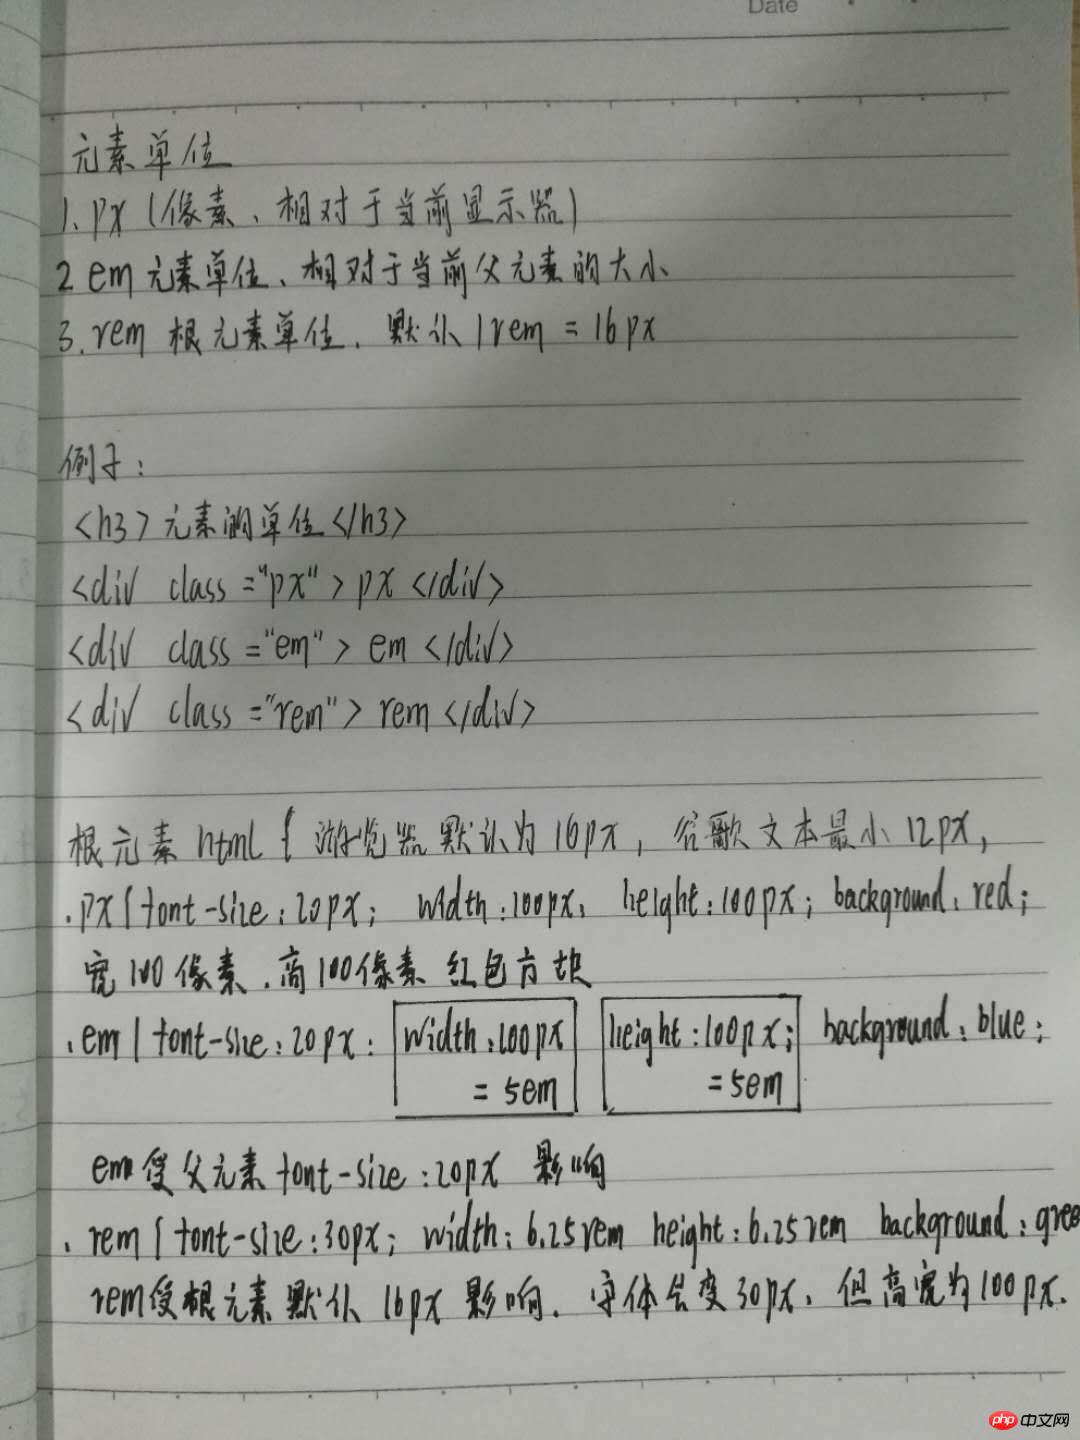 Date
元素单位
1. px (像素、相对于当前显示器)
2 em 元素单位、相对于当前父元素的大小
3. rem 根元素单位、默认 1rem = 16px
例子:
<h3> 元素的单位</h3>
<div class="px"> px </div>
<div class="em"> em </div>
<div class="rem"> rem </div>
根元素 html { 游览器默认为16px, 谷歌文本最小12px,
.px{font-size:20px; width:100px; height:100px; background:red;
宽100像素.高100像素 红色方块
.em{font-size:20px; width:100px height:100px; background:blue;
= 5em = 5em
em 受父元素 font-size:20px 影响
.rem{font-size:30px; width:6.25rem height:6.25rem background:gree
rem受根元素默认 16px 影响. 字体会变30px、但高宽为100px.
php 中文网